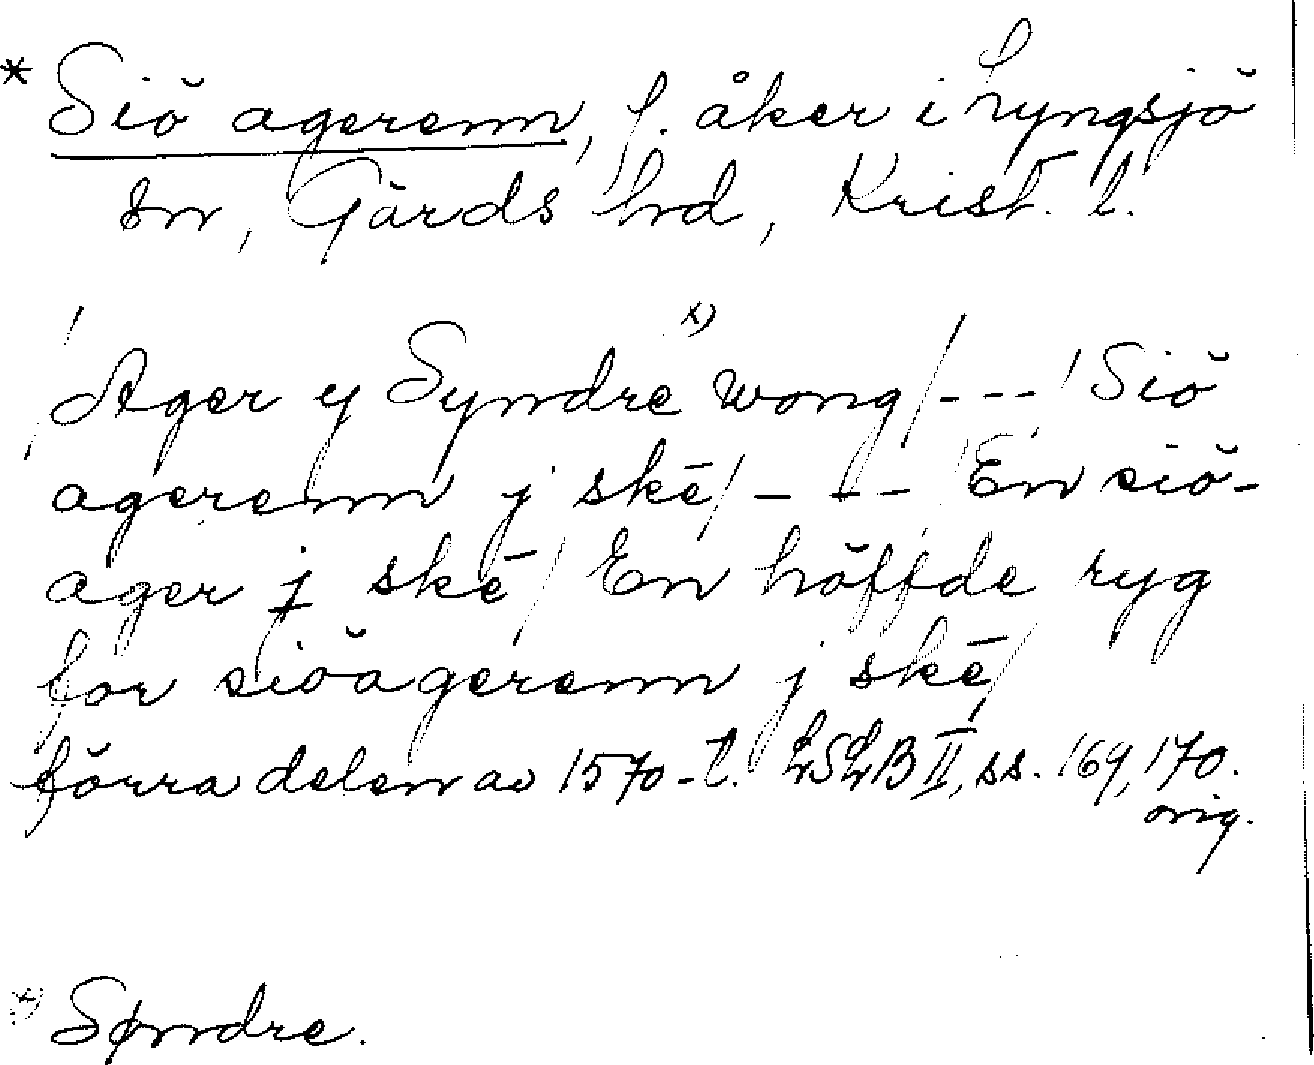 * Siŏ agerenn, f. åker i Lyngsjö
sn, Gärds hd, Krist. l.
/ Ager y Syndre x) wong / - - - / Siŏ
agerenn j skē / - - - / En siŏ-
ager j skē / En hŏffde ryg
for siŏagerenn j skē /
förra delen av 1570-t. LSLB II, ss. 169, 170.
orig.
x) Søndre.